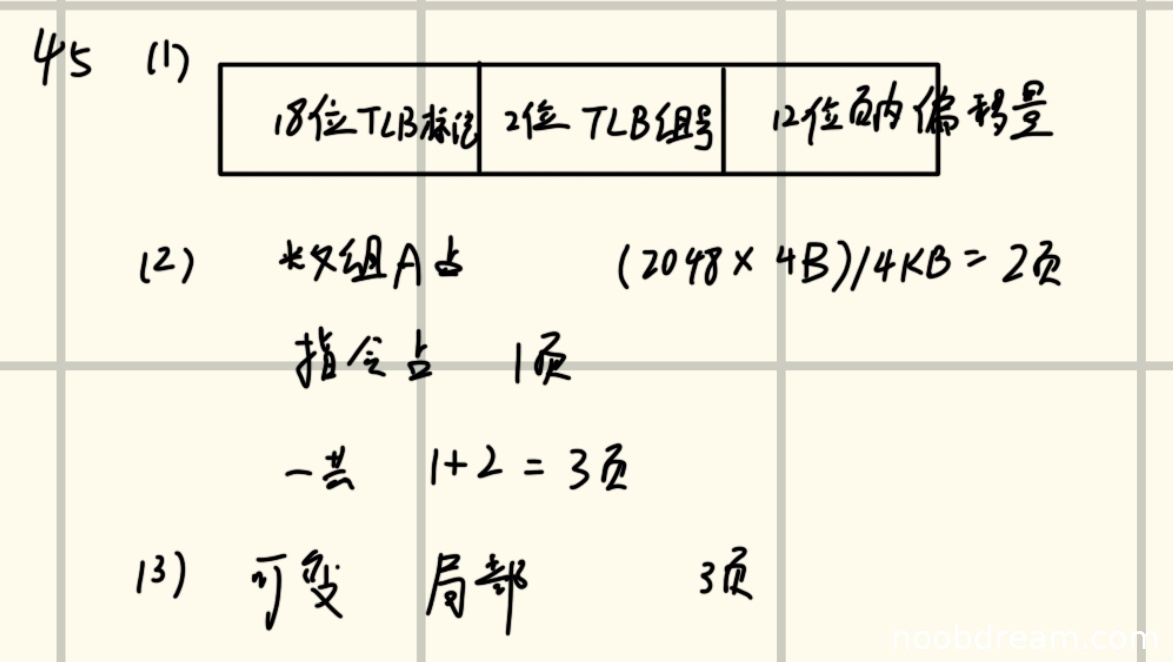 45 (1)
18位TLB标记 2位TLB组号 12位页内偏移量
(2) 数组A占 (2048×4B)/4KB=2页
指令占 1页
一共 1+2=3页
(3) 可变 局部 3页
noobdream.com